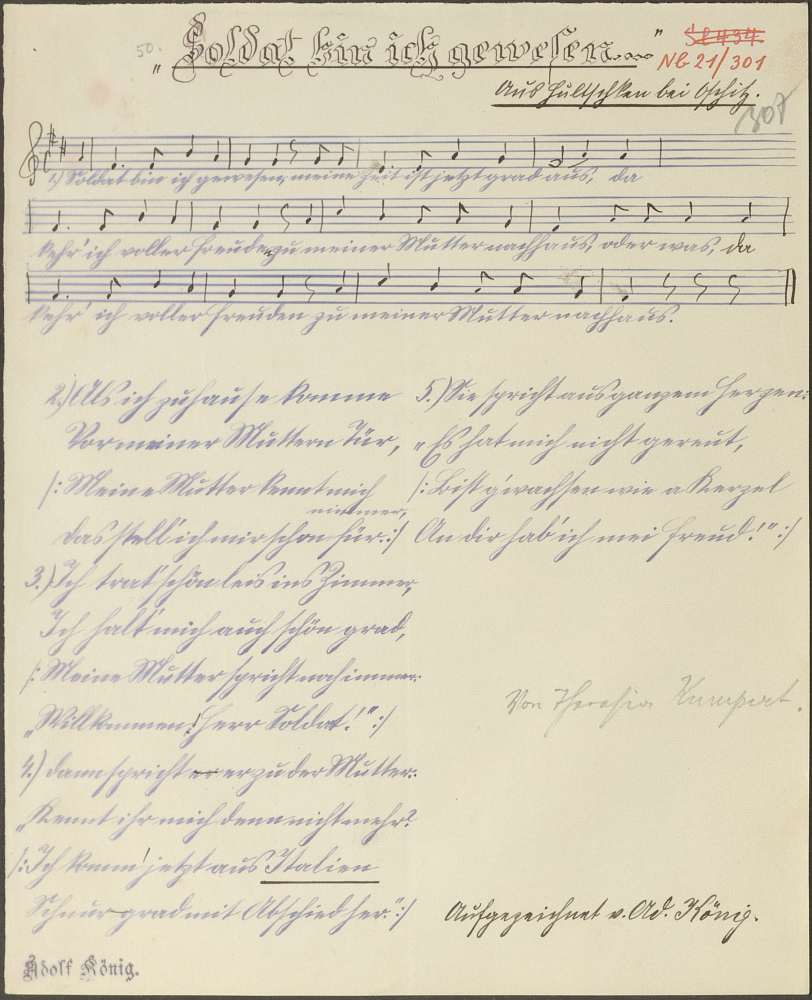 50.
„Soldat bin ich gewesen..."
Sl 434
Nb 21/301
Aus Hultschken bei Oschitz.
307
1.) Soldat bin ich gewesen, meine Zeit ist jetzt grad aus, da
kehr' ich voller Freuden zu meiner Mutter nach Haus, oder was, da
kehr' ich voller Freuden zu meiner Mutter nach Haus.
2.) Als ich zuhause komme
Vor meiner Muttern Tür,
/: Meine Mutter kennt mich
nimmer,
Das stell' ich mir schon für. :/
3.) Ich trat schön leis ins Zimmer,
Ich halt' mich auch schön grad,
/: Meine Mutter spricht noch immer:
„Willkommen! Herr Soldat!" :/
4.) Dann spricht er er zu der Mutter:
„Kennt ihr mich denn nicht mehr?
/: Ich komm' jetzt aus Italien
Schnur grad mit Abschied her." :/
5.) Sie spricht aus ganzem Herzen:
„Es hat mich nicht gereut,
/: Bist g'wachsen wie a Kerzel
An dir hab' ich mei Freud!" :/
Von Theresia Kumpert.
Aufgezeichnet v. Ad. König.
Adolf König.